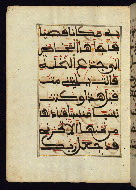 به مكانا قصيا
فاجاءها المخاض
الى جذع النخلة
قالت يليتني مت
قبل هذا وكنت
نسيا منسيا فناديها
من تحتها الا تحزني
قد جعل ربك